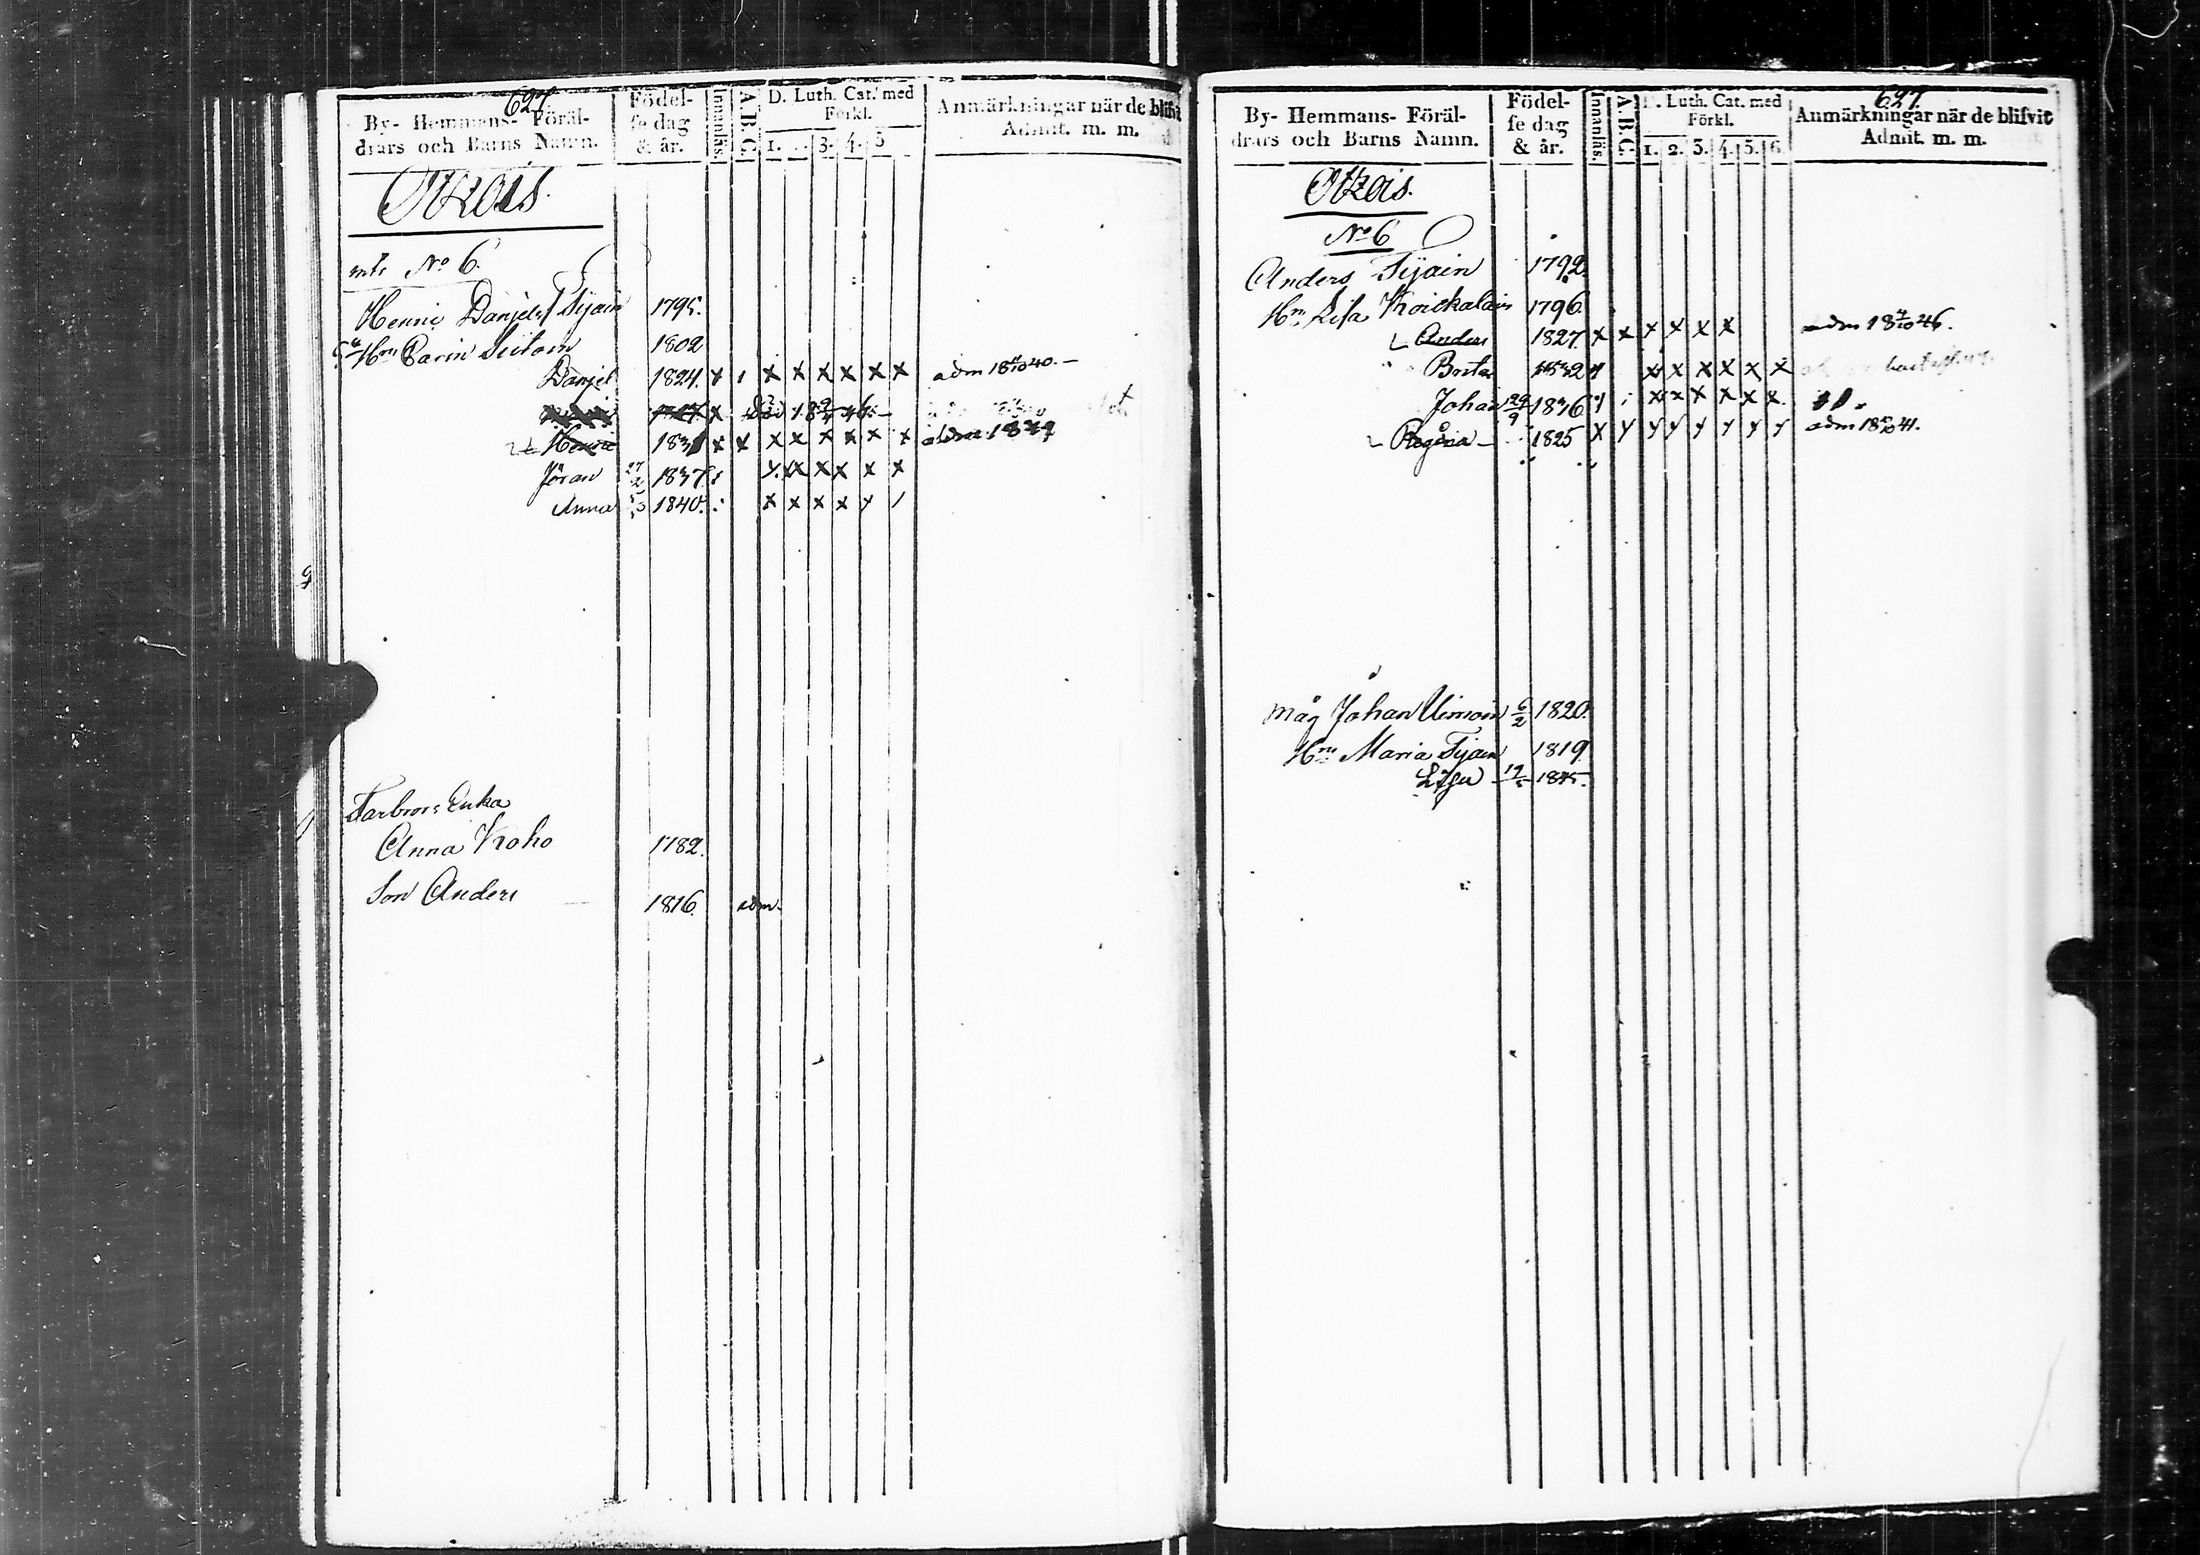 624.
By- Hemmans- Föräl-
drars och Barns Namn.
Födel-
se dag
& år.
Innanläs.
A.B.C.
D. Luth. Cat. med
Förkl.
1. 3. 4. 5
Anmärkningar när de blifvit
Admit. m. m.
Otzois.
No 6.
Henric Danjels Tijain 1795.
Hru Carin 1802
Danjel 1824. x x x x x x x adm 40. —
x död 46. —
Henric x x x x x x x x 1849
Jöran 27/2 1837. x x x x x x
Anna 1840. x x x x
Farbrors Enka
Anna Koho 1782.
Son Anders 1816. adm.
627.
By- Hemmans- Föräl-
drars och Barns Namn.
Födel-
se dag
& år.
Innanläs.
A.B.C.
D. Luth. Cat. med
Förkl.
1. 2. 3. 4. 5. 6.
Anmärkningar när de blifvit
Admit. m. m.
Otzois.
No 6
Anders Tijain 1792.
Hru Lisa Koickalain 1796.
Anders 1827. x x x x x x adm 18 4/10 46.
Brita x x x x x x
Johan 29/9 1836 x x x x x x
Regina — 1825 x adm 41.
Måg Johan Uimoin 6/2 1820.
Hru Maria Tijain 1819.
1845.